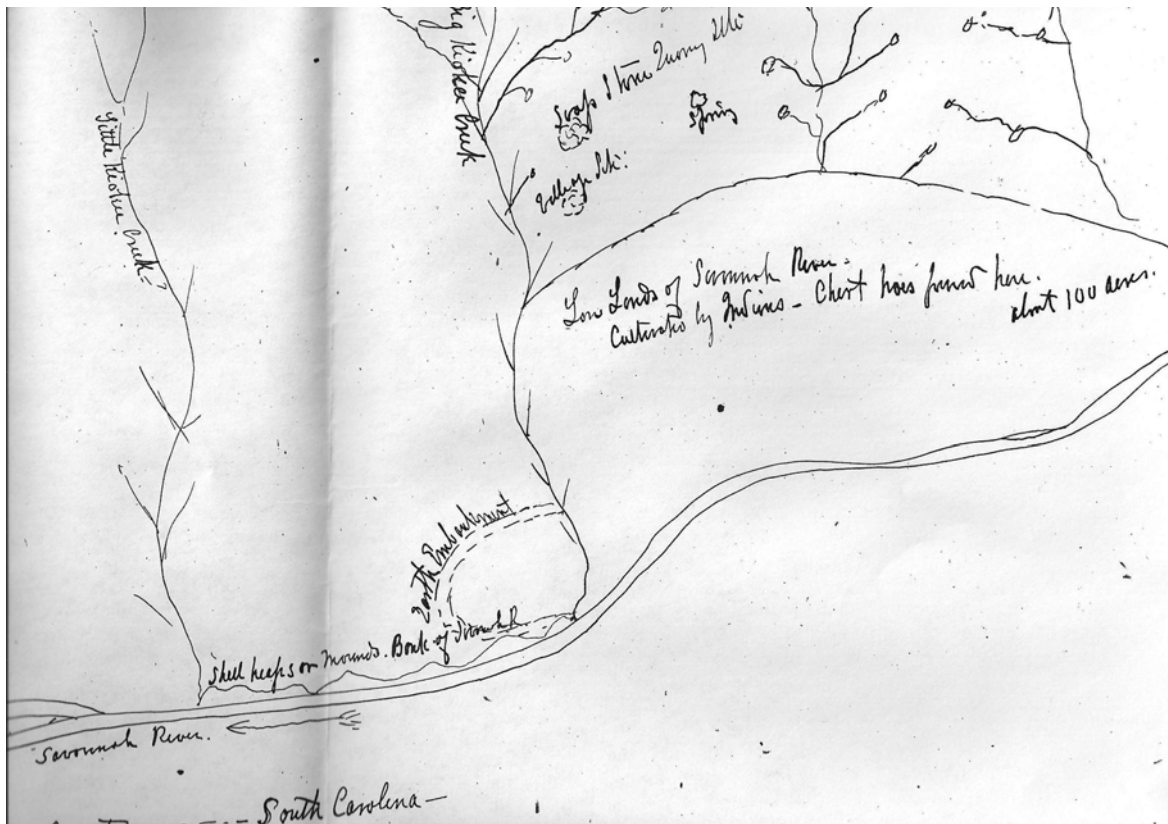 Big Kiokee Creek
Little Kiokee Creek
Soap Stone Quarry Site
Spring
Village Site
Low Lands of Savannah River.
Cultivated by Indians - Chert hoes found here.
about 100 acres.
Earth Embankment
Shell heaps or Mounds. Bank of Savannah R.
Savannah River.
South Carolina -